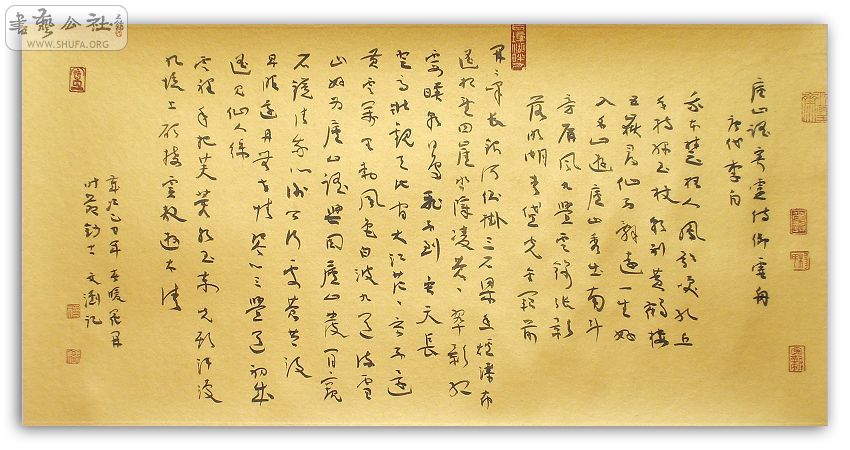 書藝公社
WWW.SHUFA.ORG
廬山謠寄盧侍御虛舟
唐代李白
我本楚狂人鳳歌笑孔丘
手持綠玉杖朝別黃鶴樓
五嶽尋仙不辭遠一生好
入名山遊廬山秀出南斗
旁屏風九疊雲錦張影
落明湖青黛光金闕前
開二峯長銀河倒掛三石梁香爐瀑布
遙相望迴崖沓嶂凌蒼蒼翠影紅
霞映朝日鳥飛不到吳天長
登高壯觀天地間大江茫茫去不還
黃雲萬里動風色白波九道流雪
山好為廬山謠興因廬山發閒窺
石鏡清我心謝公行處蒼苔沒
早服還丹無世情琴心三疊道初成
遙見仙人綵
雲裡手把芙蓉朝玉京先期汗漫
九垓上願接盧敖遊太清
文淵記